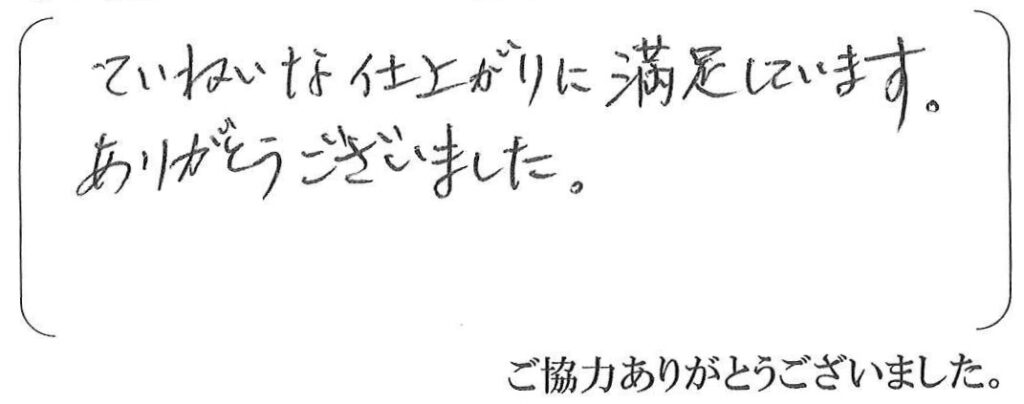 ていねいな仕上がりに満足しています。
ありがとうございました。
ご協力ありがとうございました。